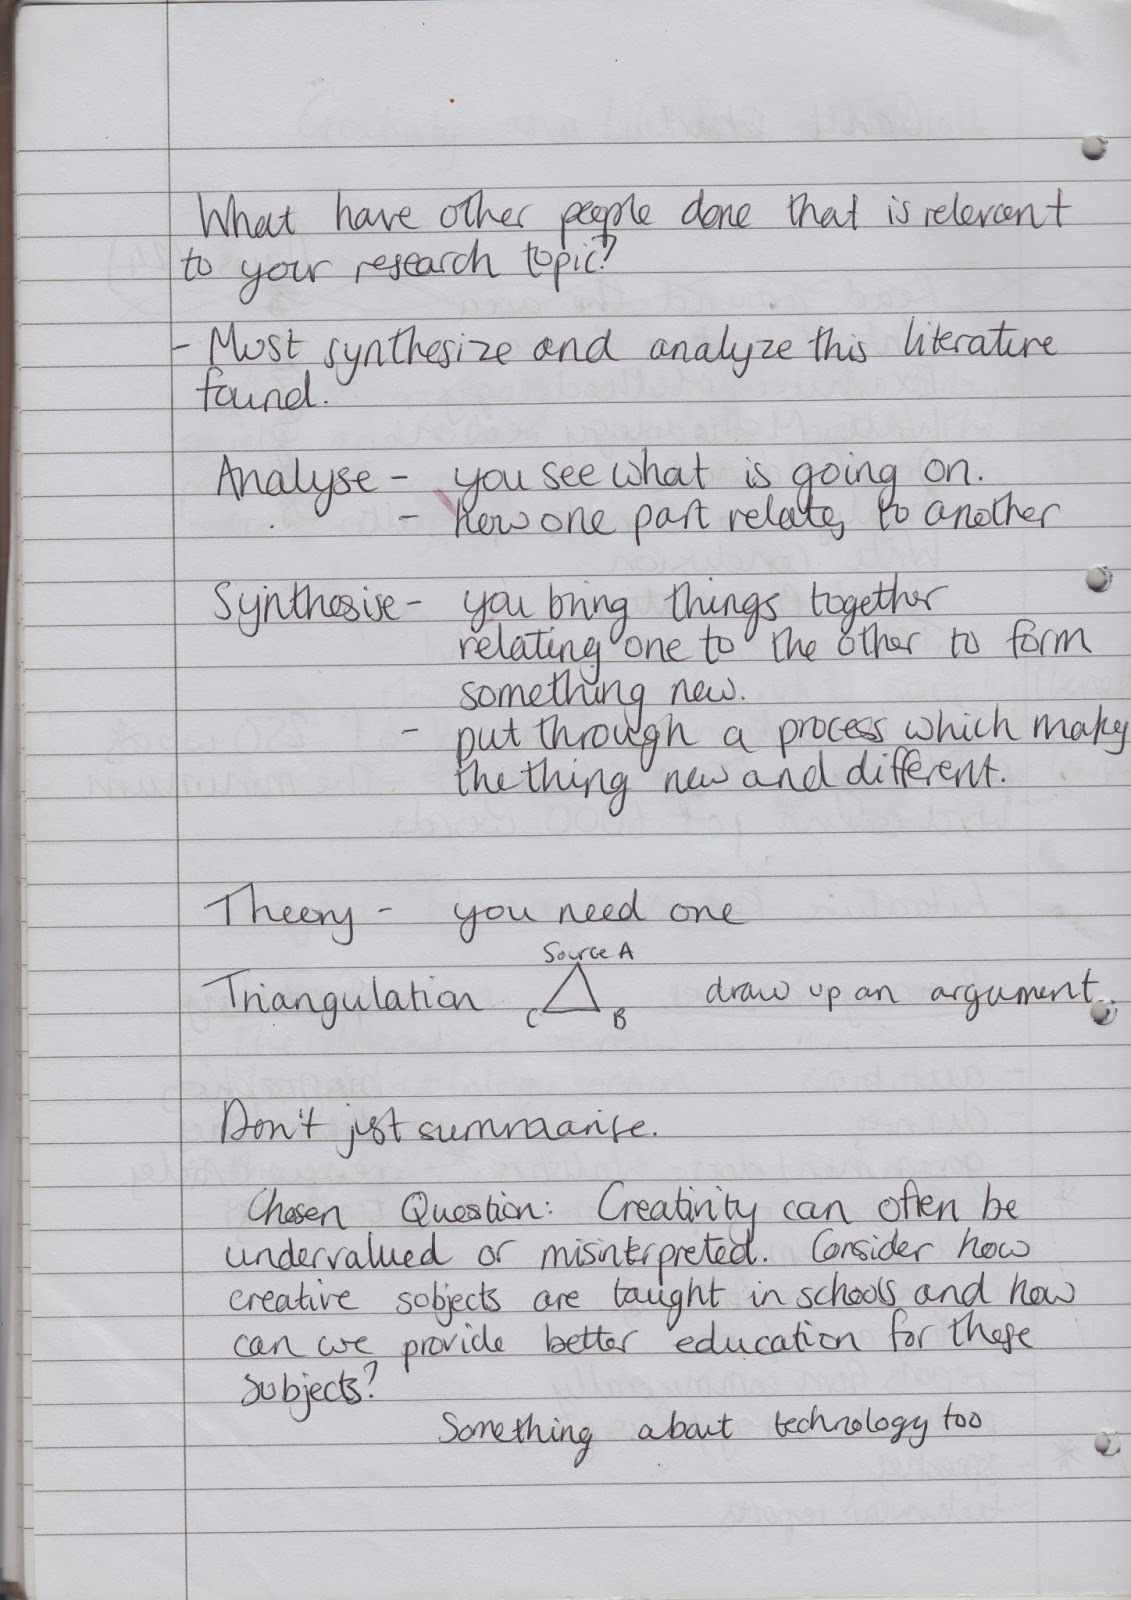 What have other people done that is relevant
to your research topic?
- Must synthesize and analyze this literature
found.
Analyse - you see what is going on.
- how one part relates to another
Synthesise - you bring things together
relating one to the other to form
something new.
- put through a process which makes
the thing new and different.
Theory - you need one
Source A
Triangulation C B draw up an argument.
Don't just summaarise.
Chosen Question: Creativity can often be
undervalued or misinterpreted. Consider how
creative subjects are taught in schools and how
can we provide better education for these
subjects?
Something about technology too